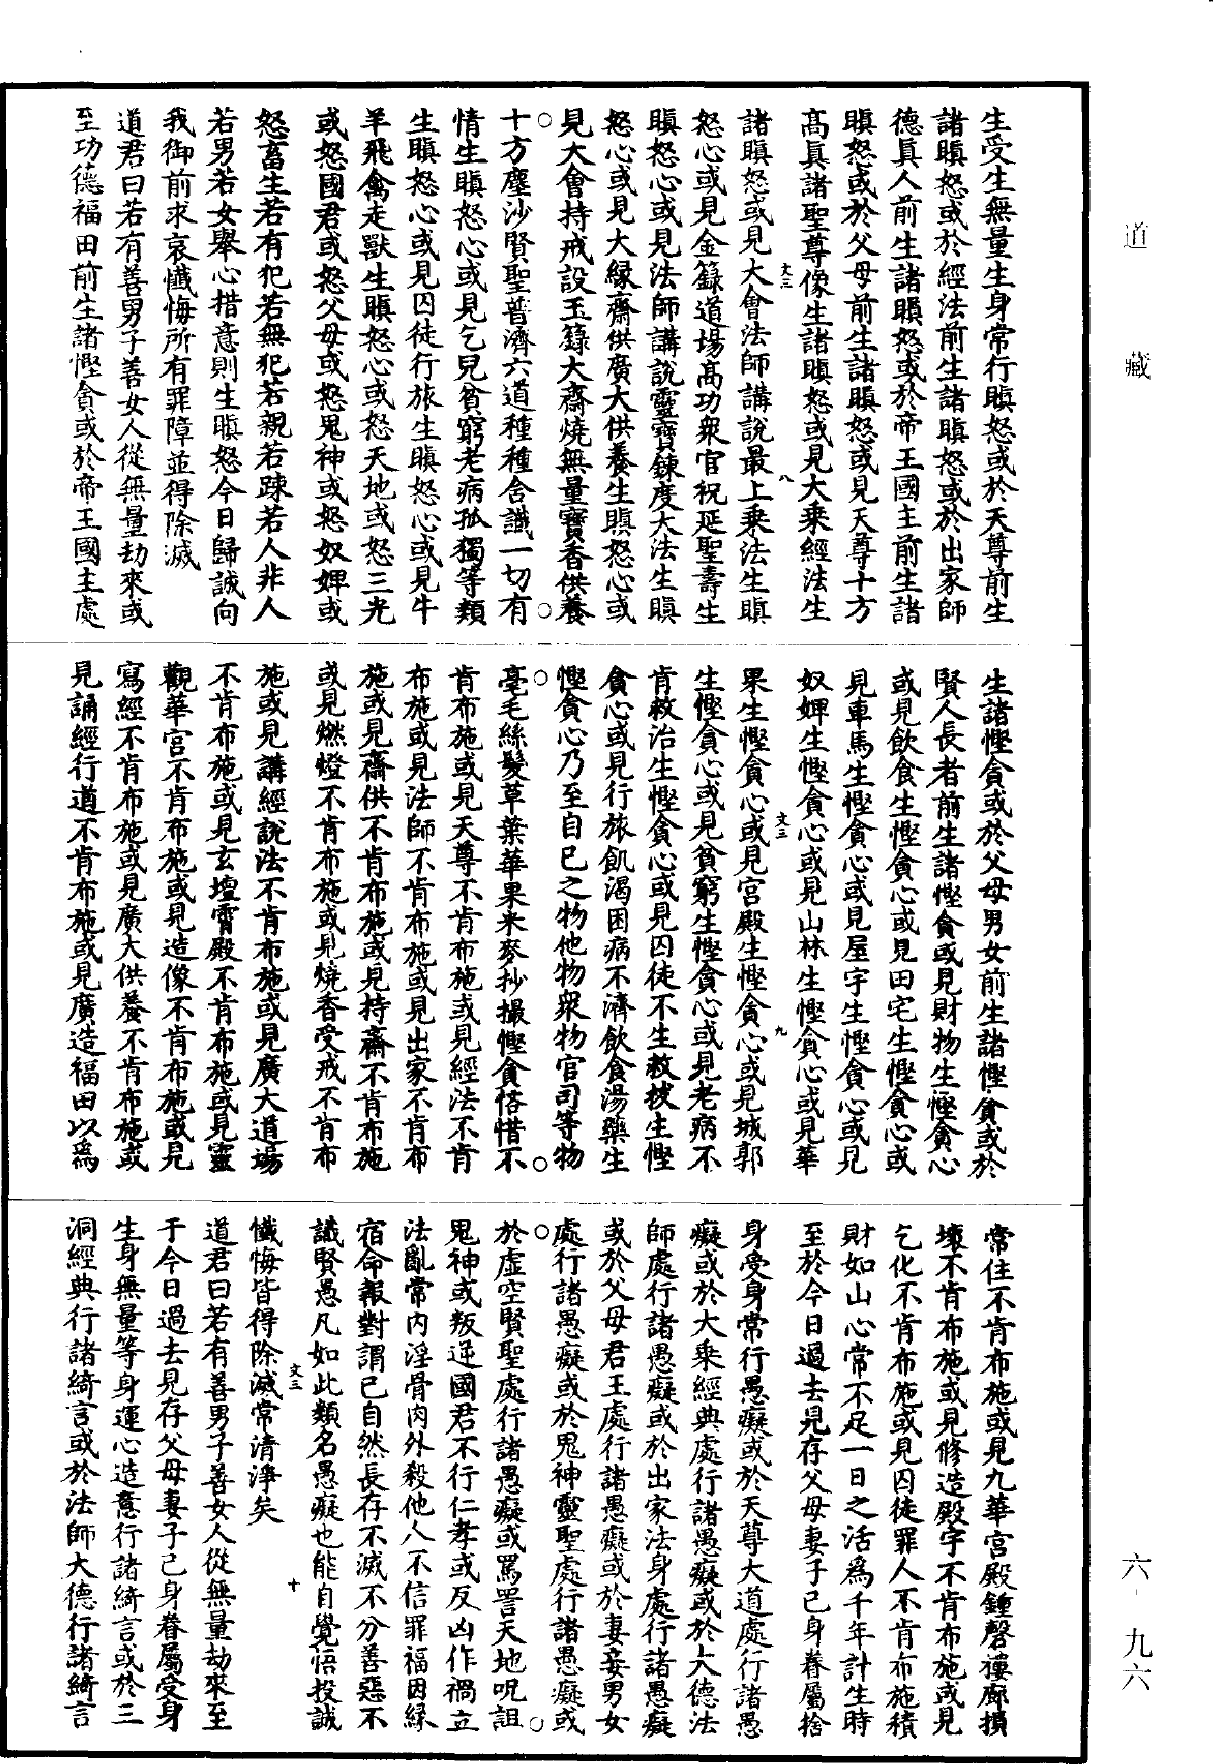 生受生無量生身常行瞋怒或於天尊前生
諸瞋怒或於經法前生諸瞋怒或於出家師
德真人前生諸瞋怒或於帝王國主前生諸
瞋怒或於父母前生諸瞋怒或見天尊十方
高真諸聖尊像生諸瞋怒或見大乘經法生
文三 八
諸瞋怒或見大會法師講說最上乘法生瞋
怒心或見金籙道場高功眾官祝延聖壽生
瞋怒心或見法師講說靈寶鍊度大法生瞋
怒心或見大緣齋供廣大供養生瞋怒心或
見大會持戒設玉籙大齋燒無量寶香供養
十方塵沙賢聖普濟六道種種含識一切有
情生瞋怒心或見乞兒貧窮老病孤獨等類
生瞋怒心或見囚徒行旅生瞋怒心或見牛
羊飛禽走獸生瞋怒心或怒天地或怒三光
或怒國君或怒父母或怒鬼神或怒奴婢或
怒畜生若有犯若無犯若親若踈若人非人
若男若女舉心措意則生瞋怒今日歸誠向
我御前求哀懺悔所有罪障並得除滅
道君曰若有善男子善女人從無量劫來或
至功德福田前生諸慳貪或於帝王國主處
生諸慳貪或於父母男女前生諸慳貪或於
賢人長者前生諸慳貪或見財物生慳貪心
或見飲食生慳貪心或見田宅生慳貪心或
見車馬生慳貪心或見屋宇生慳貪心或見
奴婢生慳貪心或見山林生慳貪心或見華
文三 九
果生慳貪心或見宮殿生慳貪心或見城郭
生慳貪心或見貧窮生慳貪心或見老病不
肯救治生慳貪心或見囚徒不生救拔生慳
貪心或見行旅飢渴困病不濟飲食湯藥生
慳貪心乃至自己之物他物眾物官司等物
毫毛絲髮草葉華果米麥抄撮慳貪悋惜不
肯布施或見天尊不肯布施或見經法不肯
布施或見法師不肯布施或見出家不肯布
施或見齋供不肯布施或見持齋不肯布施
或見燃燈不肯布施或見燒香受戒不肯布
施或見講經說法不肯布施或見廣大道場
不肯布施或見玄壇霄殿不肯布施或見靈
觀華宮不肯布施或見造像不肯布施或見
寫經不肯布施或見廣大供養不肯布施或
見誦經行道不肯布施或見廣造福田以為
常住不肯布施或見九華宮殿鍾磬樓廊損
壞不肯布施或見修造殿宇不肯布施或見
乞化不肯布施或見囚徒罪人不肯布施積
財如山心常不足一日之活為千年計生時
至於今日過去見存父母妻子己身眷屬捨
身受身常行愚癡或於天尊大道處行諸愚
癡或於大乘經典處行諸愚癡或於大德法
師處行諸愚癡或於出家法身處行諸愚癡
或於父母君王處行諸愚癡或於妻妾男女
處行諸愚癡或於鬼神靈聖處行諸愚癡或
於虛空賢聖處行諸愚癡或罵詈天地呪詛
鬼神或叛逆國君不行仁孝或反凶作禍立
法亂常內淫骨肉外殺他人不信罪福因緣
宿命報對謂己自然長存不滅不分善惡不
識賢愚凡如此類名愚癡也能自覺悟投誠
文三 十
懺悔皆得除滅常清淨矣
道君曰若有善男子善女人從無量劫來至
于今日過去見存父母妻子己身眷屬受身
生身無量等身運心造意行諸綺言或於三
洞經典行諸綺言或於法師大德行諸綺言
道藏
六-九六